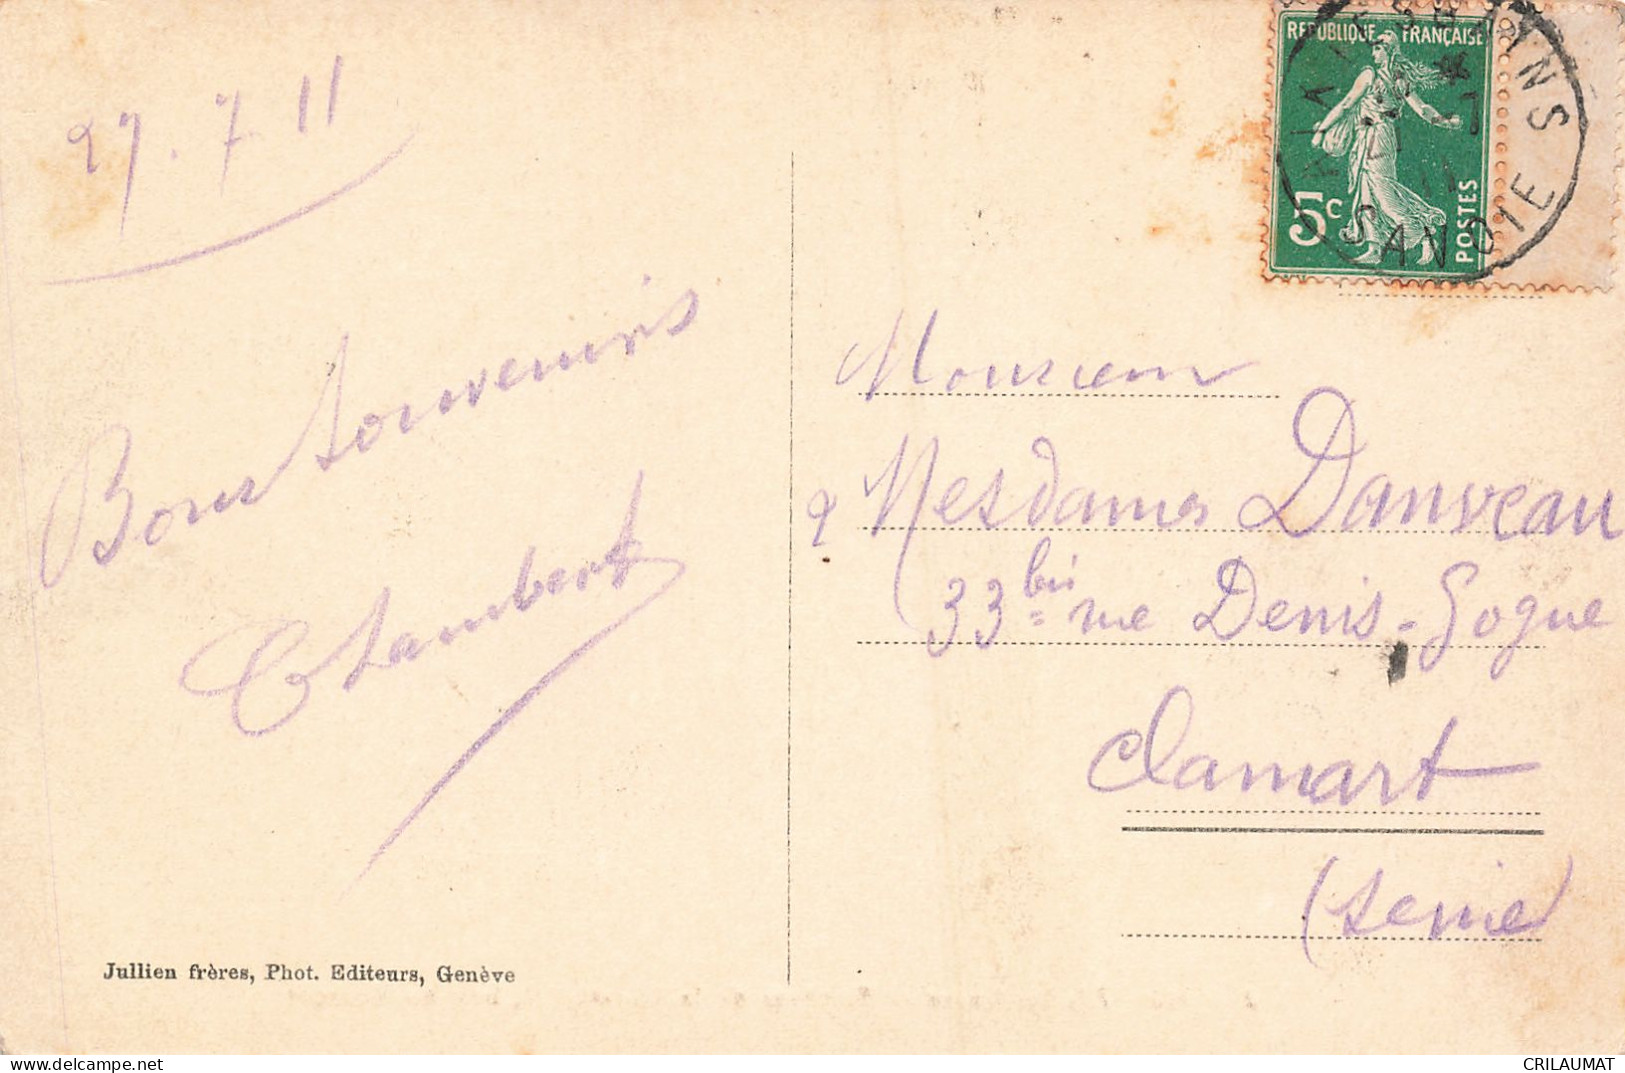 27.7 11
Bons souvenirs
Chambert
REPUBLIQUE FRANÇAISE
5c
POSTES
AIX LES BAINS
SAVOIE
Monsieur
& Mesdames Danveau
33 bis rue Denis-Gogue
Clamart
(Seine)
Jullien frères, Phot. Editeurs, Genève
CRILAUMAT